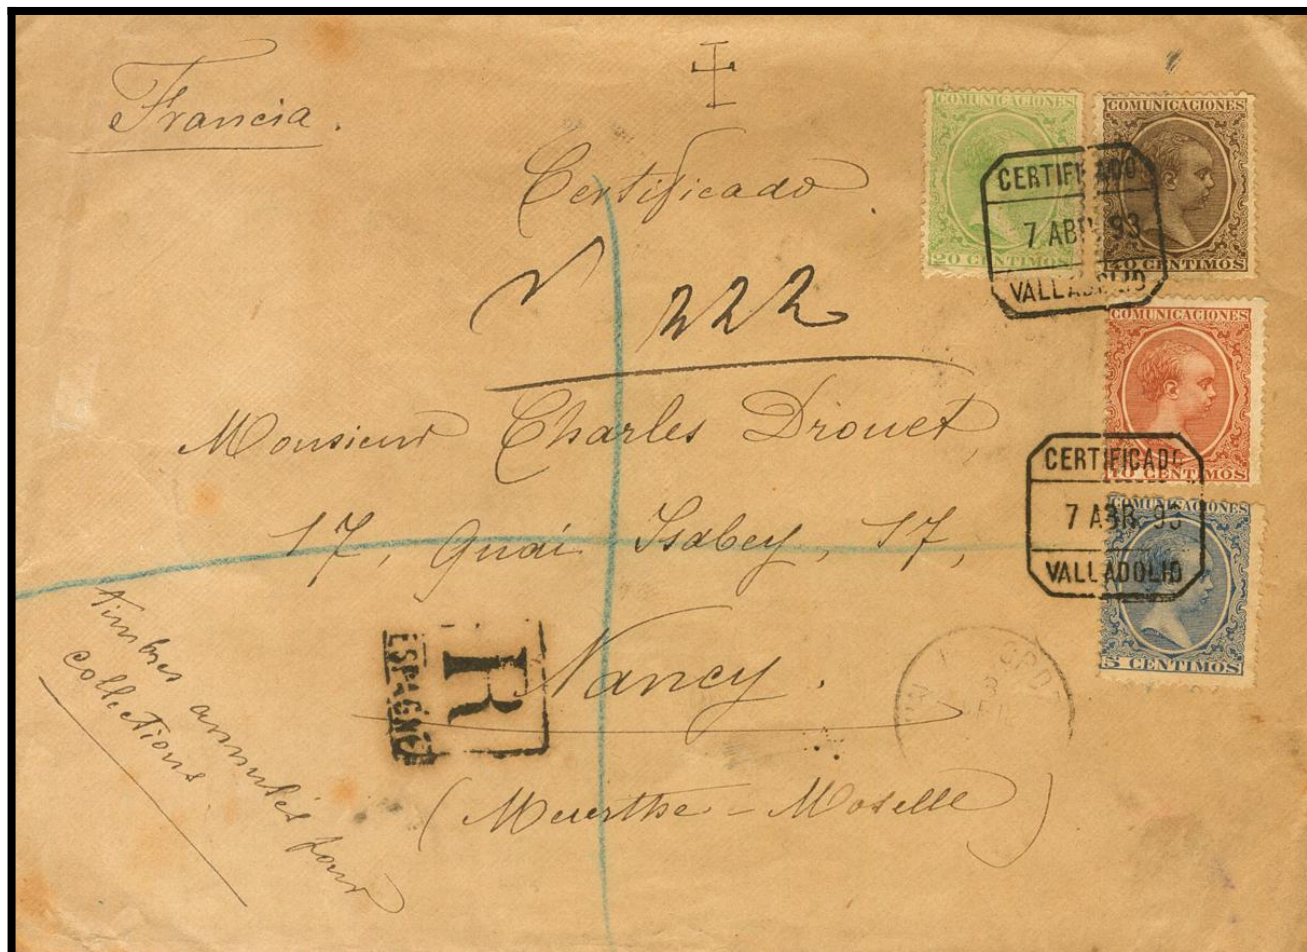 Francia.
Certificado.
222
Monsieur Charles Drouet,
17, Quai Isabey, 17,
Nancy.
(Meurthe-Moselle)
timbres annulés pour
collections
COMUNICACIONES
20 CENTIMOS
COMUNICACIONES
40 CENTIMOS
CERTIFICADO
7 ABR. 93
VALLADOLID
COMUNICACIONES
10 CENTIMOS
CERTIFICADO
7 ABR. 93
VALLADOLID
COMUNICACIONES
5 CENTIMOS
R
ESPAGNE